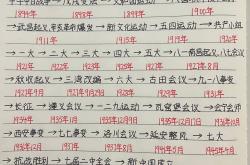 1894年 1898年 1900年
→武昌起义,辛亥革命爆发→新文化运动→五四运动→共产小组
1911年 1915年 1919年 1920年
→一大→二大→三大→四大→五大→八一南昌起义,八七会议
1921年 1922年 1923年 1925年 1927年 1927年
→秋收起义→三湾改编→六大→古田会议→九一八事变
1927年 1927年 1928年 1929年 1931年
→长征→遵义会议→一二九运动→瓦窑堡会议→会宁会师
1934年 1935年 1935年 1935年 1936年
→西安事变→七七事变→洛川会议→延安整风→七大
1936年12月 1937年7月 1937年8月 1945年4月
→抗战胜利→七届二中全会→新中国成立